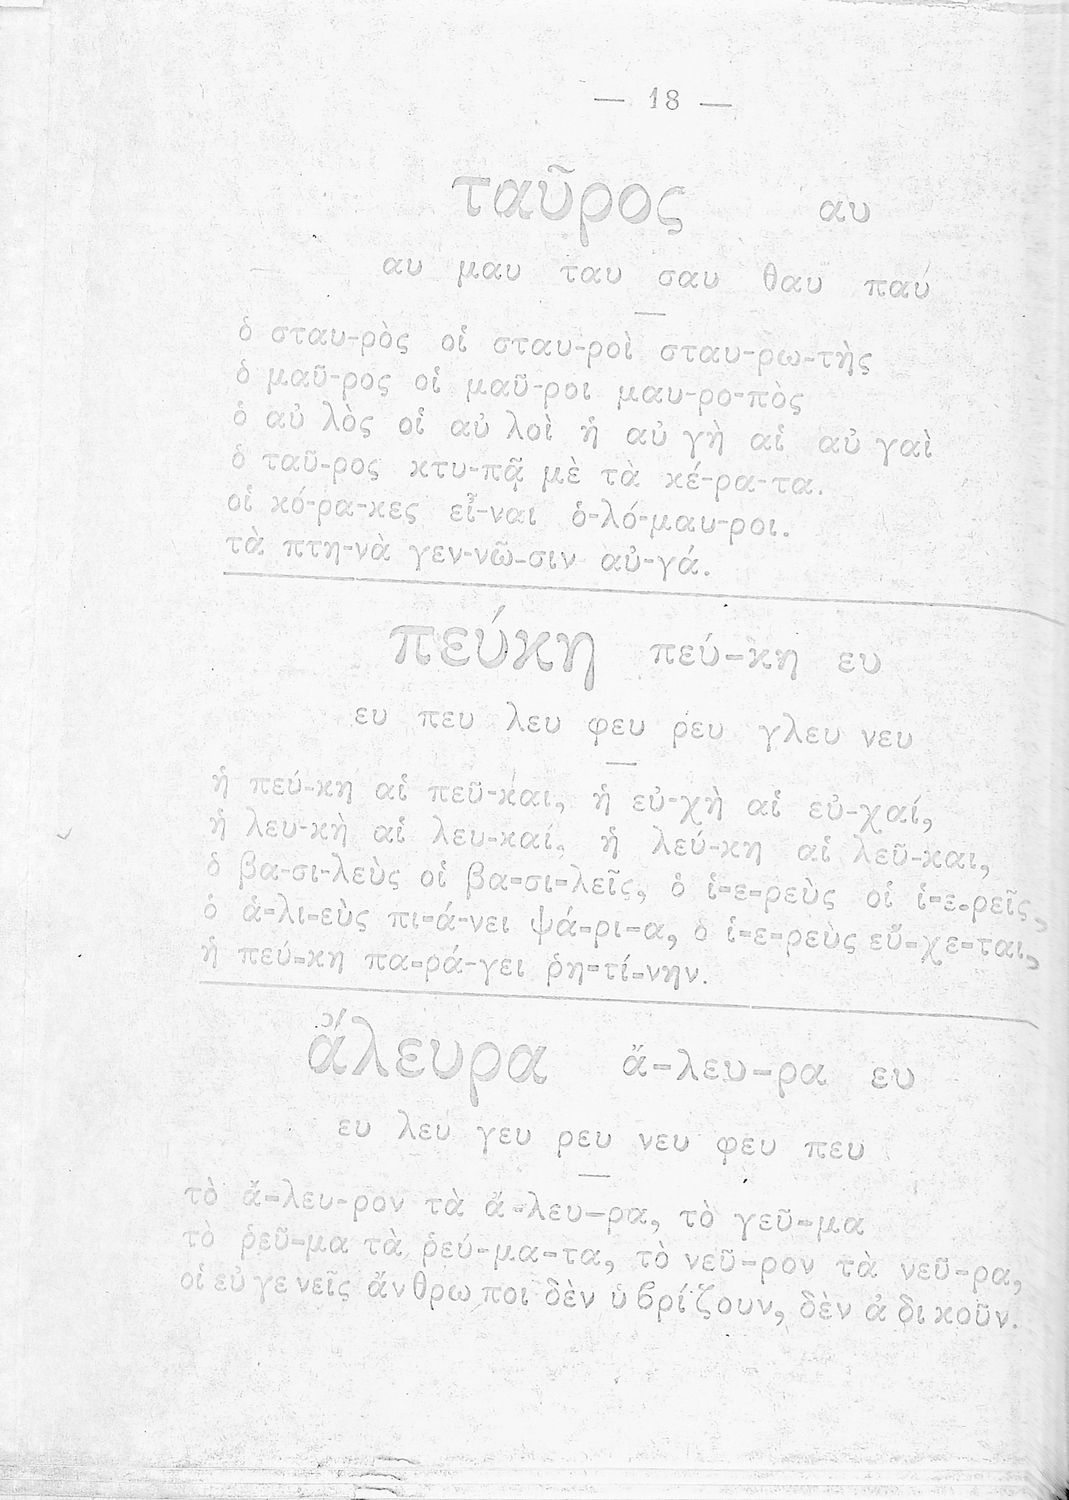 — 18 —
ταῦρος αυ
αυ μαυ ταυ σαυ θαυ παύ
ὁ σταυ-ρὸς οἱ σταυ-ροὶ σταυ-ρω-τὴς
ὁ μαῦ-ρος οἱ μαῦ-ροι μαυ-ρο-πὸς
ὁ αὐ λὸς οἱ αὐ λοὶ ἡ αὐ γὴ αἱ αὐ γαὶ
ὁ ταῦ-ρος κτυ-πᾷ μὲ τὰ κέ-ρα-τα.
οἱ κό-ρα-κες εἶ-ναι ὁ-λό-μαυ-ροι.
τὰ πτη-νὰ γεν-νῶ-σιν αὐ-γά.
πεύκη πεύ-κη ευ
ευ πευ λευ φευ ρευ γλευ νευ
ἡ πεύ-κη αἱ πεῦ-και, ἡ εὐ-χὴ αἱ εὐ-χαί,
ἡ λευ-κὴ αἱ λευ-καί, ἡ λεύ-κη αἱ λεῦ-και,
ὁ βα-σι-λεὺς οἱ βα-σι-λεῖς, ὁ ἱ-ε-ρεὺς οἱ ἱ-ε-ρεῖς,
ὁ ἁ-λι-εὺς πι-ά-νει ψά-ρι-α, ὁ ἱ-ε-ρεὺς εὔ-χε-ται,
ἡ πεύ-κη πα-ρά-γει ῥη-τί-νην.
ἄλευρα ἄ-λευ-ρα ευ
ευ λευ γευ ρευ νευ φευ πευ
τὸ ἄ-λευ-ρον τὰ ἄ-λευ-ρα, τὸ γεῦ-μα
τὸ ῥεῦ-μα τὰ ῥεύ-μα-τα, τὸ νεῦ-ρον τὰ νεῦ-ρα,
οἱ εὐ γε νεῖς ἄν θρω ποι δὲν ὑ βρί ζουν, δὲν ἀ δι κοῦν.